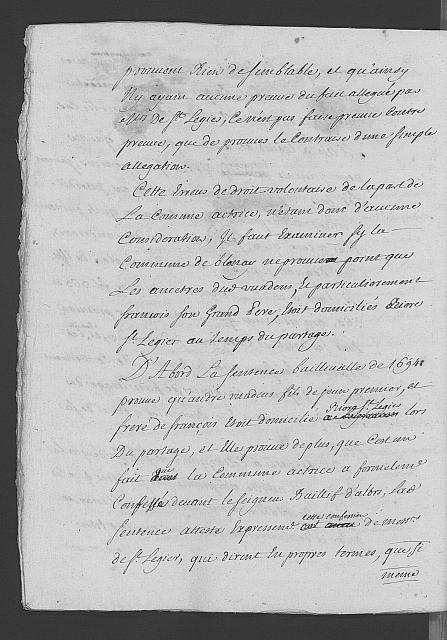 prouvent Rien de semblable, et qu'ainsy
N'y ayant aucune preuve du fait allegué par
Mrs De St Legier, Ce n'est pas faire preuve Contre
preuve, que de prouver le Contraire d'une simple
allegation.
Cette Erreur de droit volontaire de la part de
La Comune actrice, n'étant donc d'aucune
Consideration, Il faut Examiner sy la
Commune de Blonay ne prouve point que
Les ancetres dud. madens, Et particulierement
françois son Grand Pere, Etoit domiciliés
St Legier au tems du partage.
D'Abord La sentence Baillivalle de 1694
prouve qu'andre madens fils de jean premier, et
frere de françois Etoit domicilié St Legier lors
Du partage, et Elle prouve de plus, que C'est un
fait que la Commune actrice a formelemt
Confessé devant le seigneur Baillif d'alors, Lade
sentence atteste Expressemt cette confession de mesrs
de St Legier, qui dirent En propres termes, que si
meme